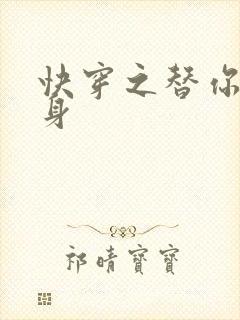 快穿之替你
身
祁晴寶寶